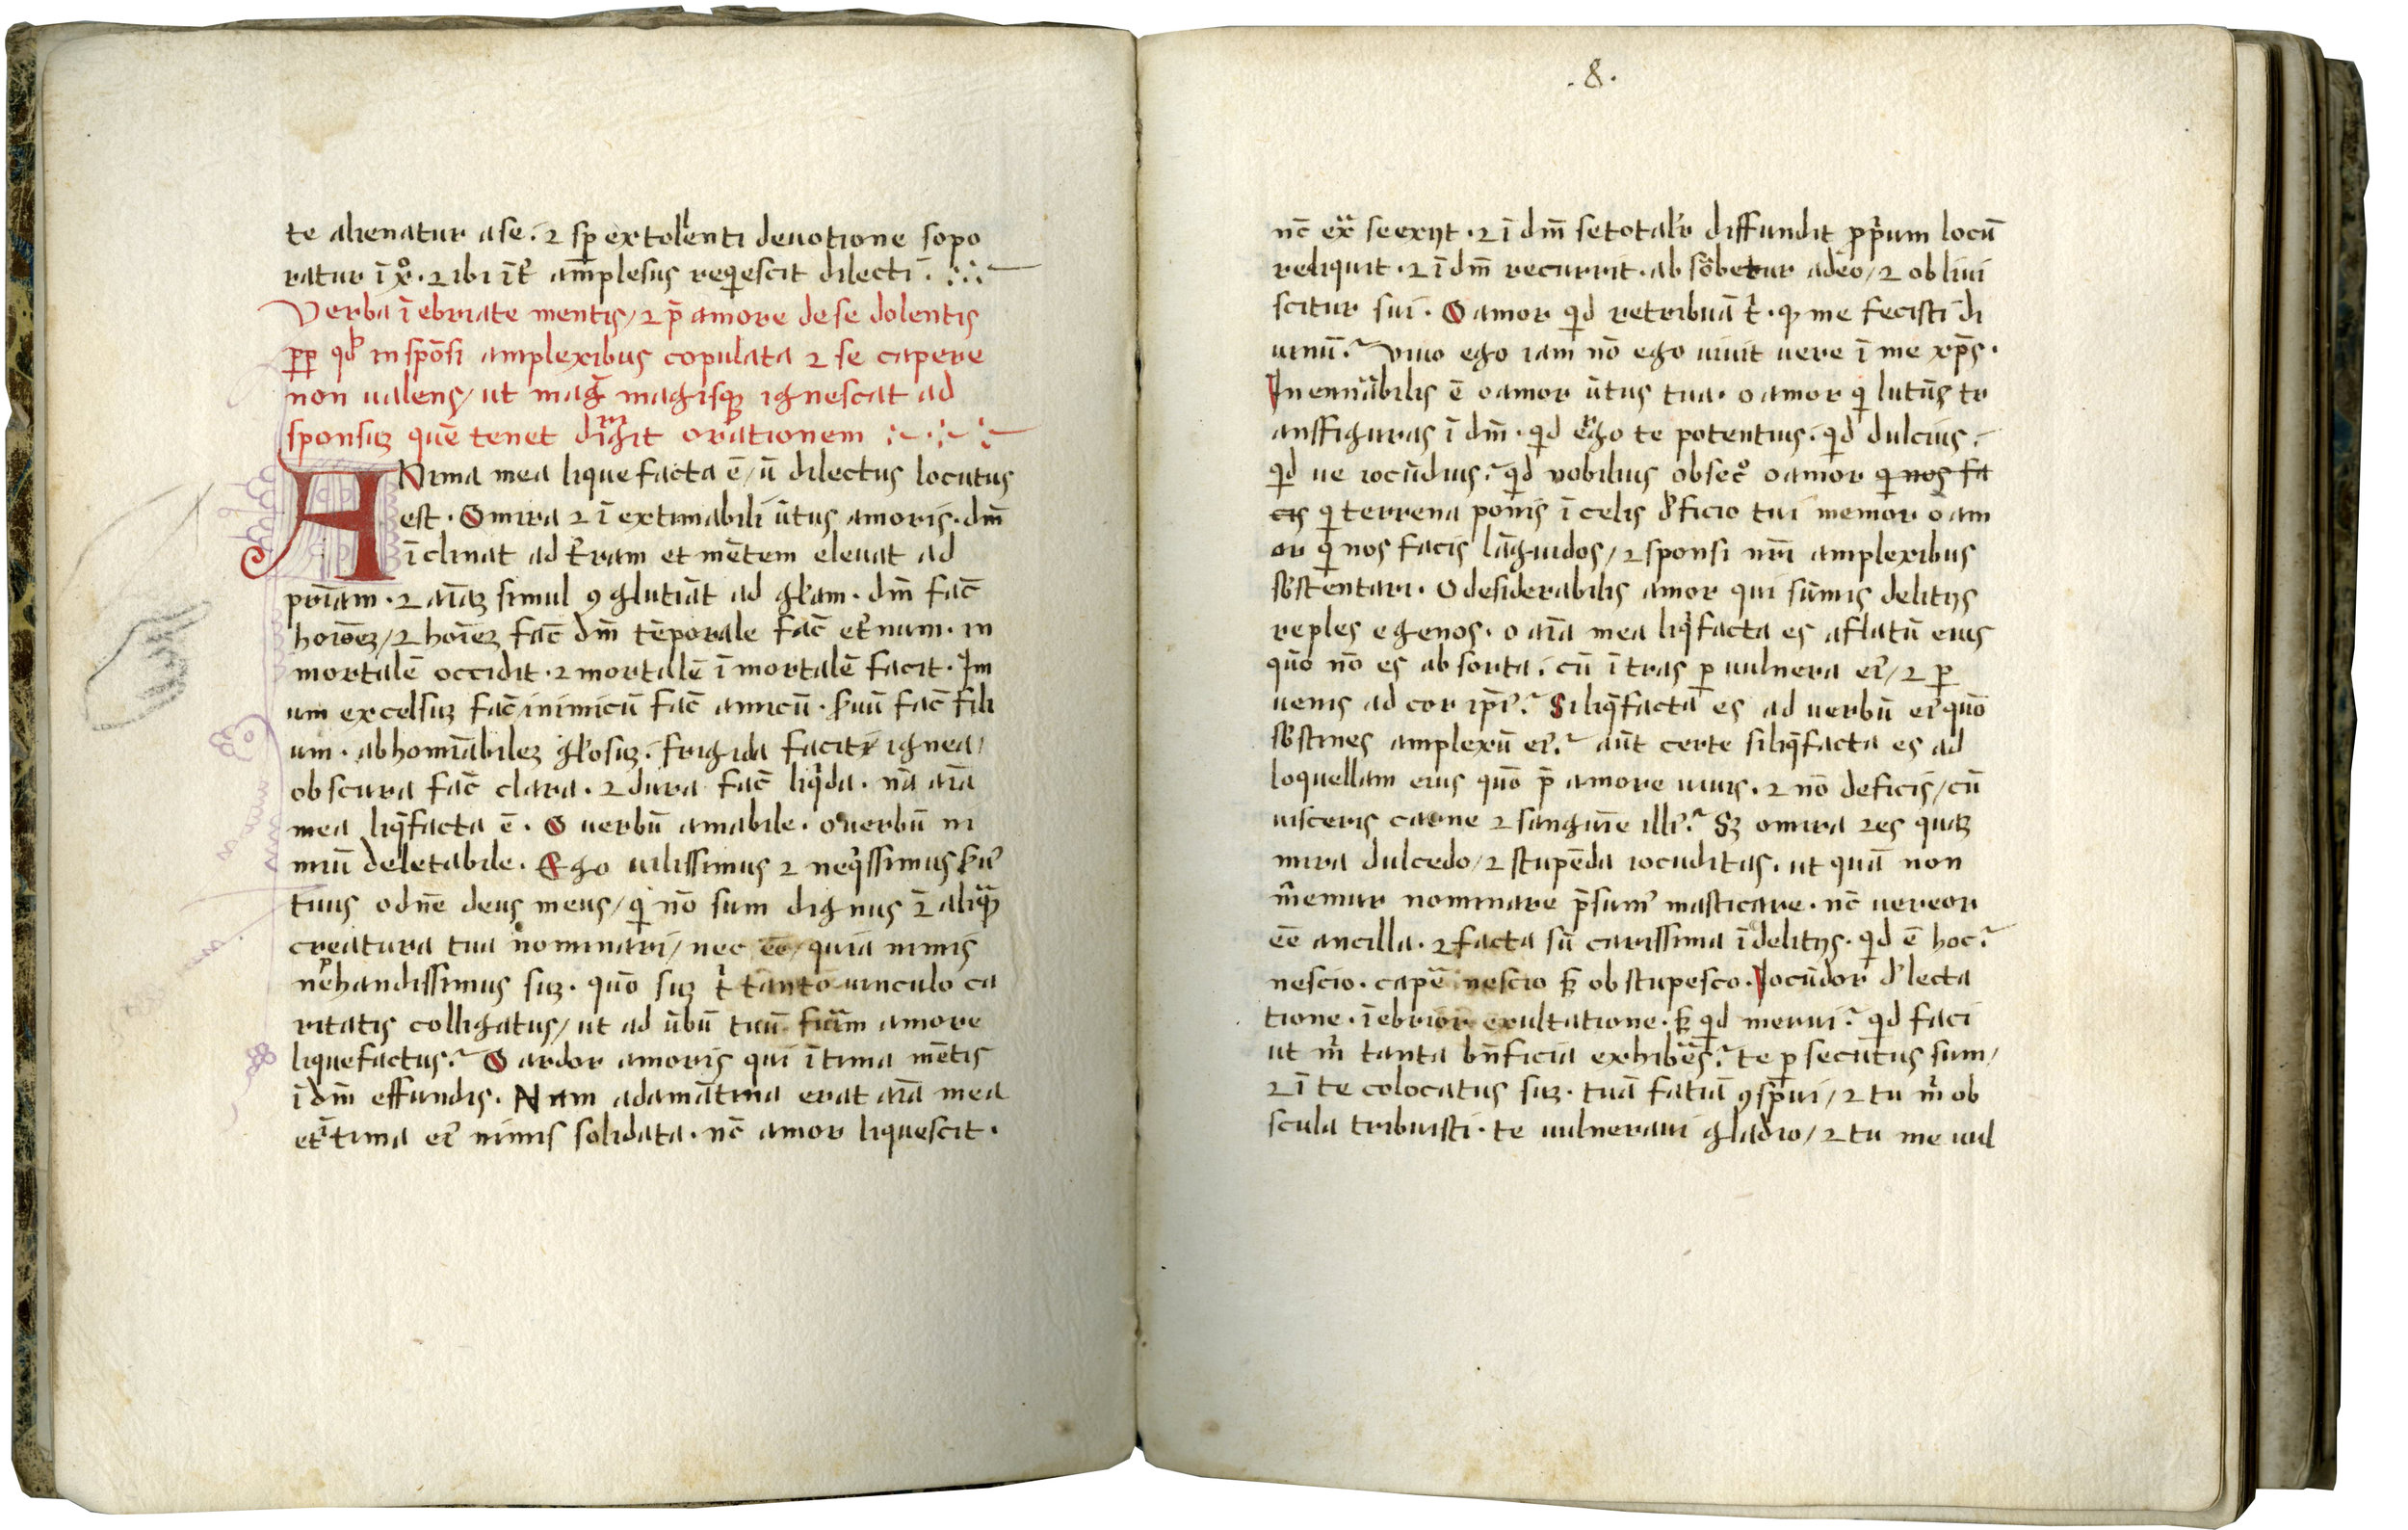 te alienatur a se. ⁊ sp̄ extolle᷑nti deuotione sopo
ratur ī xo̊. ⁊ ibi īt᷑ am̄plesus req̄escit dilecti.
Verba ī ebriate mentis / ⁊ p̄ amore de se dolentis
ꝓp qd̓ in spōsi amplexibus copulata ⁊ se capere
non ualens / ut mag̃ magisqꝫ ignescat ad
sponsuꝫ quē tenet dirigit orationem
ANima mea liquefacta ē / ū dilectus locutus
est. O mira ⁊ ī extimabili ūtus amoris. dm̄
ī clinat ad t᷑ram et mētem eleuat ad
pr̄iam. ⁊ aīaꝫ simul ꝯglutiāt ad gl̄am. dm̄ fac̄
hoīeꝫ / ⁊ hoīeꝫ fac̄ dm̄ tēporale fac̄ et᷑num. in
mortalē occidit. ⁊ mortalē ī mortalē facit. Im
um excelsuꝫ fac̄ / inimicū fac̄ amicū. s᷑uū fac̄ fili
um. abhomīabileꝫ gl̄osuꝫ. frigida facit ignea /
obscura fac̄ clara. ⁊ dura fac̄ liq̄da. nā aīa
mea liq̄facta ē. O uerbū amabile. o uerbū ni
miū deletabile. Ego uilissimus ⁊ neq̄ssimus s᷑u᷑
tuus o dn̄e deus meus / q̄ nō sum dignus ī aliqͣ
creatura tua nominari / nec ēē / quia nimis
nephandissimus suꝫ. quō suꝫ t̄ tanto uinculo ca
ritatis colligatus / ut ad ūbū tuū amore
liquefactus? O ardor amoris qui ītima mētis
ī dm̄ effundis. Nam adamātina erat aīa mea
et᷑tima ei᷑ nimis solidata. nc̄ amor liquescit.
.8.
nc̄ exͣ se exijt. ⁊ ī dm̄ se totalr̄ diffundit ꝓpr̄ium locū
reliquit. ⁊ ī dm̄ recurrit. ab sorbetur adeo / ⁊ obliui
scitur sui. O amor qͥd retribuā t̄. qꝫ me fecisti di
uinū? Viuo ego iam nō ego uiuit uere ī me xp̄s.
Inenn̄abilis ē o amor ūtus tua. o amor qͥ lutūs tr
ansffiguras ī dm̄. qͥd ergo te potentius. qͥd dulcius.
qͥd ue iocūdius? qͥd nobilius obsec̊ o amor qͥ nos fa
cis qͥ terrena ponis ī celis d᷑ficio tui memor o am
or qͥ nos facis lāguidos / ⁊ sponsi nr̄i amplexibus
sb̄stentari. O desiderabilis amor qui sūmis delitijs
reples egenos. o aīa mea liq̄facta es aflatū eius
quō nō es absorta. cū ītras ꝑ uulnera ei᷑ / ⁊ ꝑ
uenis ad cor ip̄i᷑? Si liq̄facta es ad uerbū ei᷑ quō
sb̄stines amplexū ei᷑? aūt certe si liq̄facta es ad
loquellam eius quō p̄ amore uiuis. ⁊ nō deficis / cū
uisceris carne ⁊ sanguīe illi᷑? Sꝫ o mira res quaꝫ
mira dulcedo / ⁊ stupēda iocūditas. ut quā non
m̄emur nominare p̄sum᷑ masticare. nc̄ uereor
ēē ancilla. ⁊ facta sū carissima ī delitijs. qͥd ē hoc?
nescio. capē nescio sꝫ obstupesco. Iocūdor d᷑lecta
tione. īebrior exultatione. sꝫ qͥd merui? qͥd faci
ut m̄ tanta bn̄ficia exhibēs? te ꝑsecūtus sum /
⁊ ī te colocatus suꝫ. tuā fatuā ꝯsp̄ui / ⁊ tu m̄ ob
scula tribuisti. te uulneraui gladio / ⁊ tu me uul